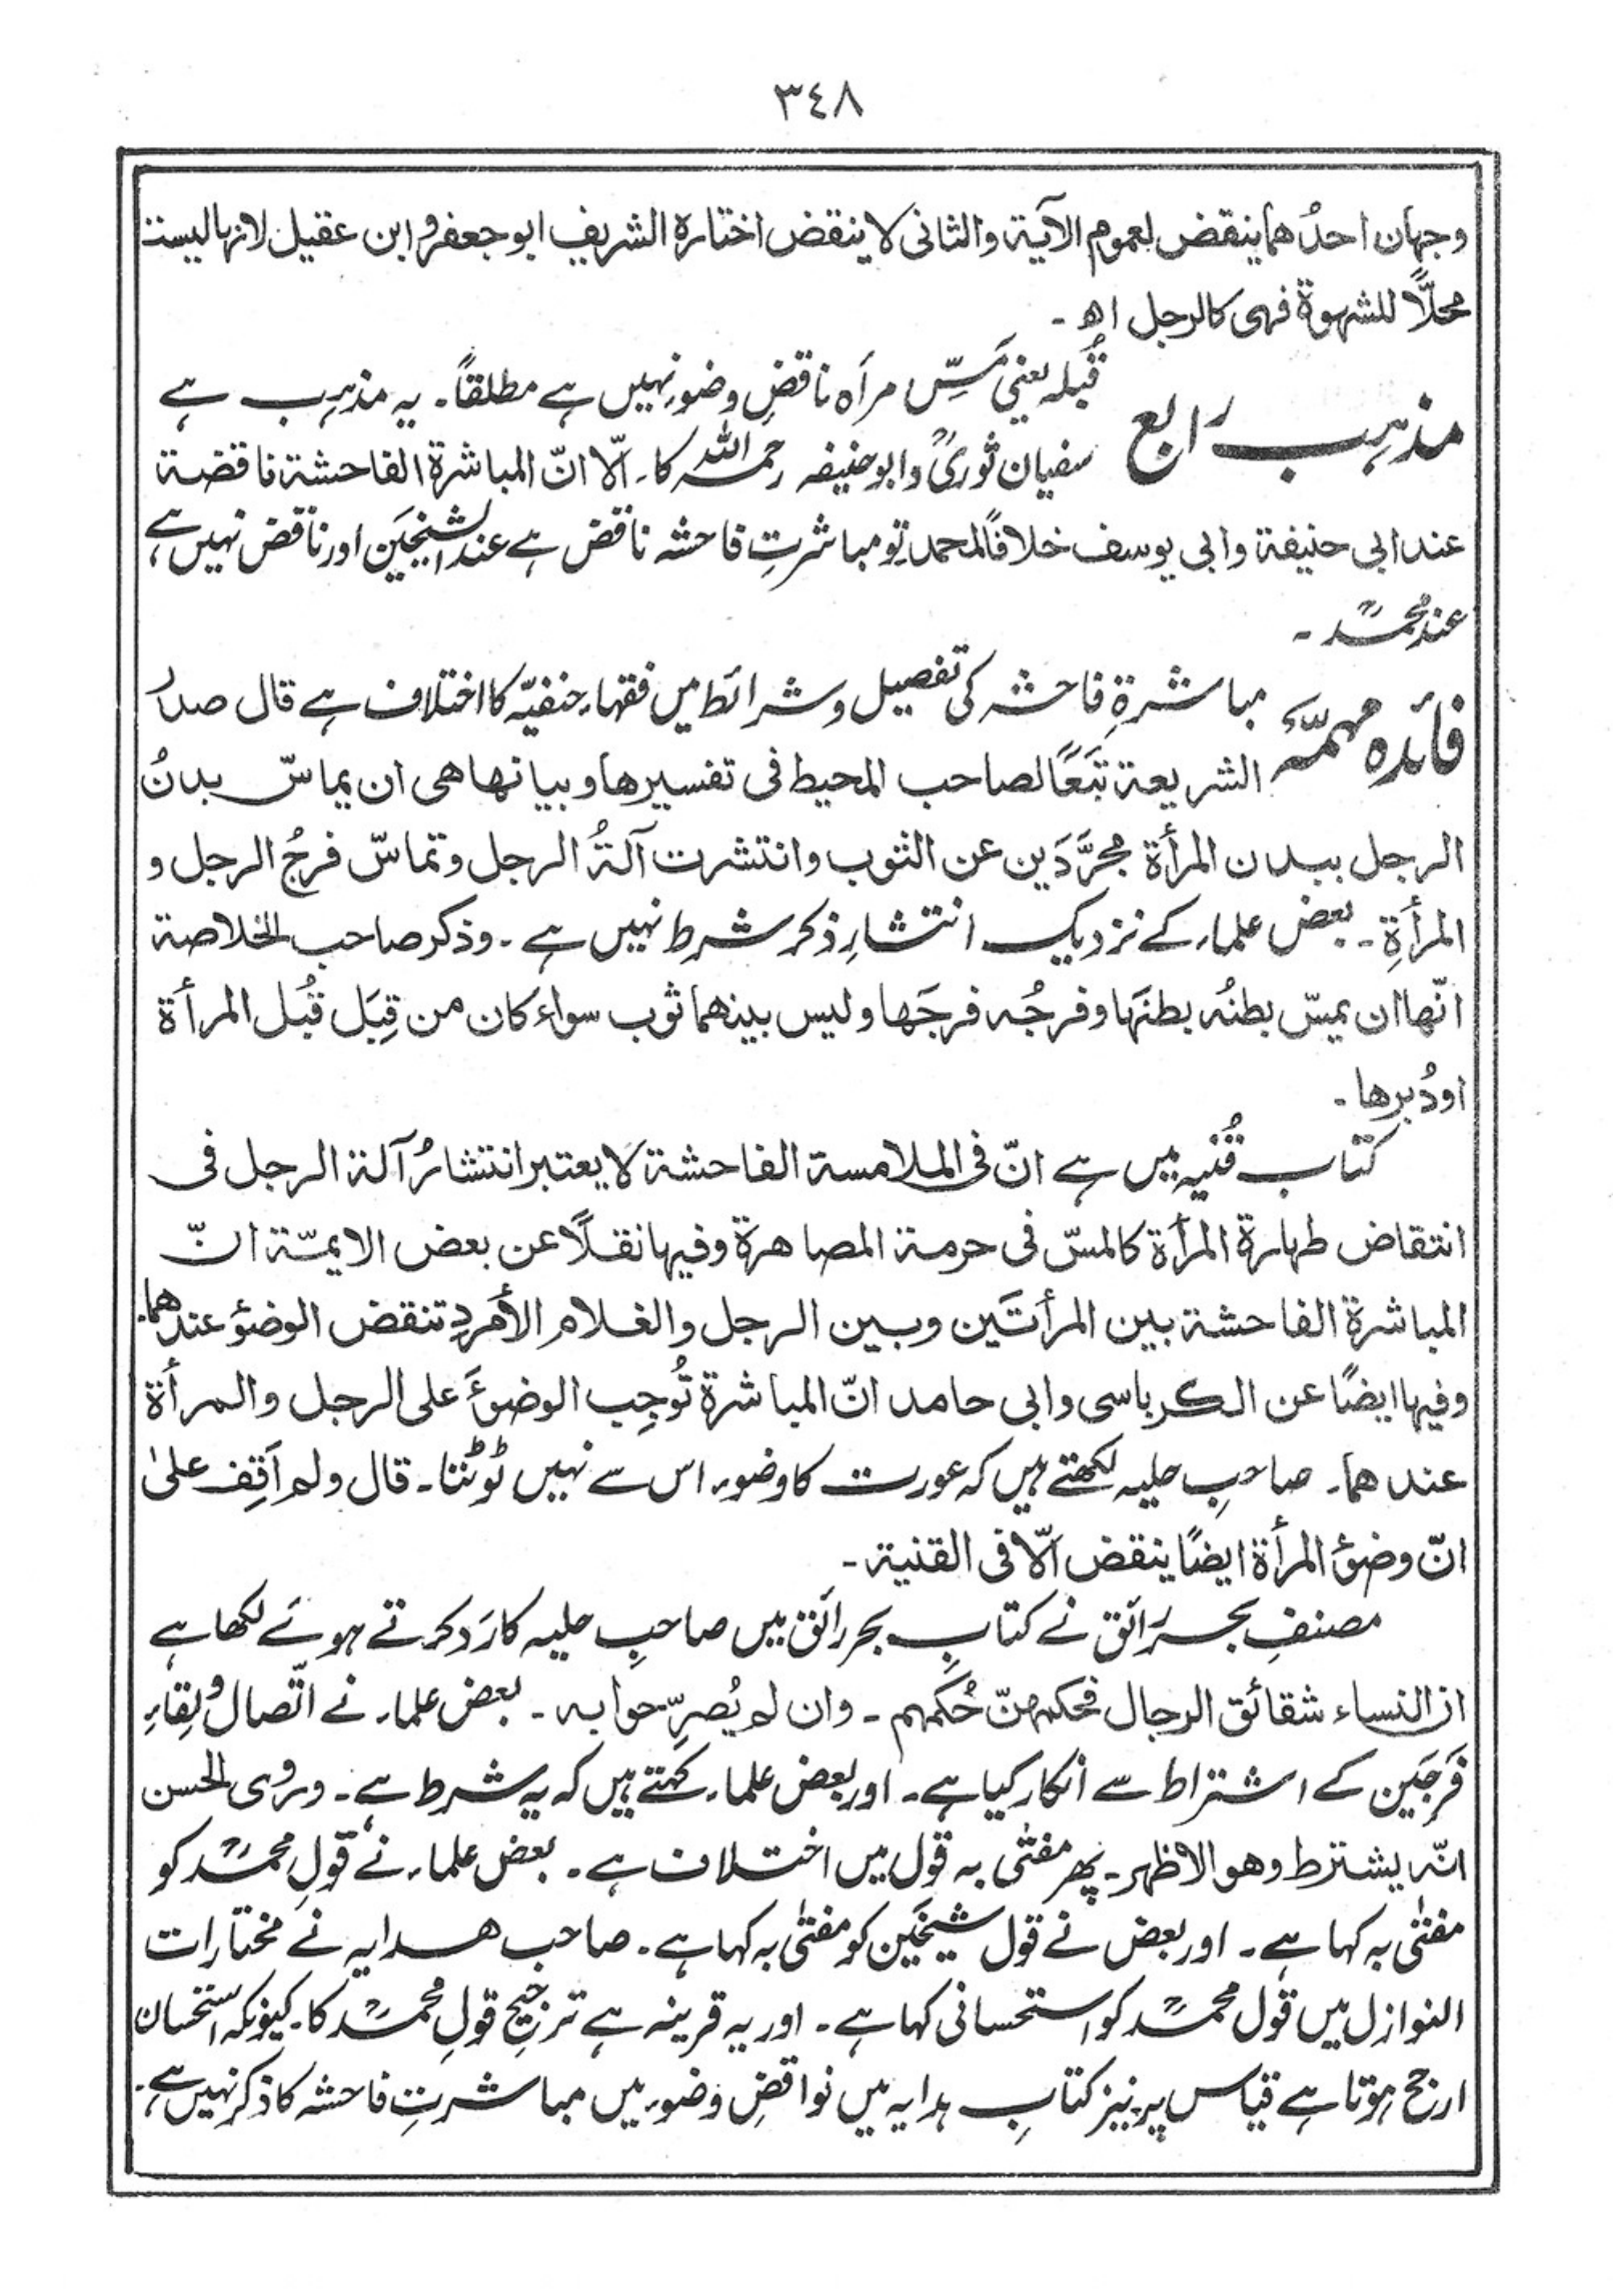 ٣٤٨
وجہان احدُھما ینقض لعموم الآیۃ والثانی لا ینقض اختارہ الشریف ابو جعفر و ابن عقیل لانہا لیست
محلًّا للشہوۃ فہی کالرجل اھ ۔
مذہب رابع قُبلہ یعنی مَسِّ مرأہ ناقضِ وضوء نہیں ہے مطلقاً ۔ یہ مذہب ہے
سفیان ثوریؒ و ابو حنیفہ رحمہ اللہ کا ۔ اِلّا انّ المباشرۃ الفاحشۃ ناقضۃ
عند ابی حنیفۃ و ابی یوسف خلافًا لمحمد تو مباشرتِ فاحشہ ناقض ہے عند الشیخَین اور ناقض نہیں ہے
عند محمدؒ ۔
فائدہ مہمّہ مباشرۃِ فاحشہ کی تفصیل و شرائط میں فقہاءِ حنفیّہ کا اختلاف ہے قال صدرُ
الشریعۃ تبَعًا لصاحب المحیط فی تفسیرھا و بیانھا ھی ان یماسّ بدنُ
الرجل ببدن المرأۃ مجرَّدَین عن الثوب وانتشرت آلۃُ الرجل وتماسّ فرجُ الرجل و
المرأۃِ ۔ بعض علماء کے نزدیک انتشارِ ذکر شرط نہیں ہے ۔ وذکر صاحب الخلاصۃ
انّھا ان یمسّ بطنُہ بطنَہا وفرجُہ فرجَھا ولیس بینھما ثوب سواء کان من قِبَل قُبل المرأۃ
او دُبرھا ۔
کتاب قُنیہ میں ہے انّ فی الملامسۃ الفاحشۃ لا یعتبر انتشارُ آلۃ الرجل فی
انتقاض طہارۃ المرأۃ کالمسّ فی حرمۃ المصاھرۃ وفیہا نقلًا عن بعض الایمّۃ انّ
المباشرۃ الفاحشۃ بین المرأتَین وبین الرجل والغلام الأمردِ تنقض الوضؤ عندھما۔
وفیہا ایضًا عن الکرباسی وابی حامد انّ المباشرۃ تُوجِب الوضؤَ علی الرجل والمرأۃ
عندھما ۔ صاحبِ حلیہ لکھتے ہیں کہ عورت کا وضوء اس سے نہیں ٹوٹتا ۔ قال ولم اَقِف علیٰ
انّ وضؤ المرأۃ ایضًا ینقض اِلّا فی القنیۃ ۔
مصنفِ بحر رائق نے کتابِ بحر رائق میں صاحبِ حلیہ کا رَد کرتے ہوئے لکھا ہے
ان النساء شقائق الرجال فحکمہنّ حُکمہم ۔ وان لم یُصرِّحوا بہ ۔ بعض علماء نے اتّصال و لِقاءِ
فَرجَین کے اشتراط سے انکار کیا ہے ۔ اور بعض علماء کہتے ہیں کہ یہ شرط ہے ۔ وروی الحسن
انّہ یشترط وھو الاظہر ۔ پھر مفتٰی بہ قول میں اختلاف ہے ۔ بعض علماء نے قولِ محمدؒ کو
مفتٰی بہ کہا ہے ۔ اور بعض نے قول شیخَین کو مفتٰی بہ کہا ہے ۔ صاحب ھدایہ نے مختارات
النوازل میں قول محمدؒ کو استحسانی کہا ہے ۔ اور یہ قرینہ ہے ترجیحِ قولِ محمدؒ کا ۔ کیونکہ استحسان
ارجح ہوتا ہے قیاس پر ۔ نیز کتابِ ہدایہ میں نواقضِ وضوء میں مباشرتِ فاحشہ کا ذکر نہیں ہے ۔